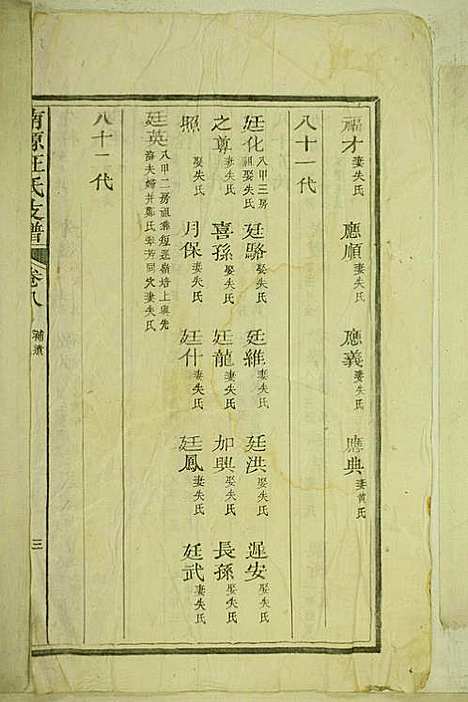 福才妻失氏 應順妻失氏 應義妻失氏 應典妻黄氏
八十一代
廷化八甲三房祖娶失氏 廷駱娶失氏 廷維娶失氏 廷洪娶失氏 遲安娶失氏
之尊妻失氏 喜孫娶失氏 廷龍妻失氏 加興娶失氏 長孫娶失氏
照娶失氏 月保娶失氏 廷什妻失氏 廷鳳妻失氏 廷武妻失氏
廷英八甲二房祖葬
裔夫婦并鄭氏李芳同穴妻失氏
八十一代
南源汪氏支譜 卷八 補遺 三